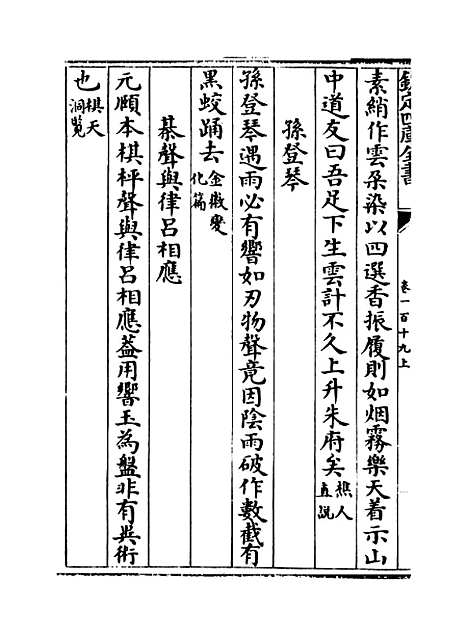 欽定四庫全書
卷一百十九上
素綃作雲朶染以四選香振履則如烟霧樂天着示山
中道友曰吾足下生雲計不久上升朱府矣樵人直說
孫登琴
孫登琴遇雨必有響如刃物聲竟因陰雨破作數截有
黑蛟踊去金徽變化篇
棊聲與律呂相應
元頤本棋枰聲與律呂相應葢用響玉為盤非有異術
也棋天洞覽